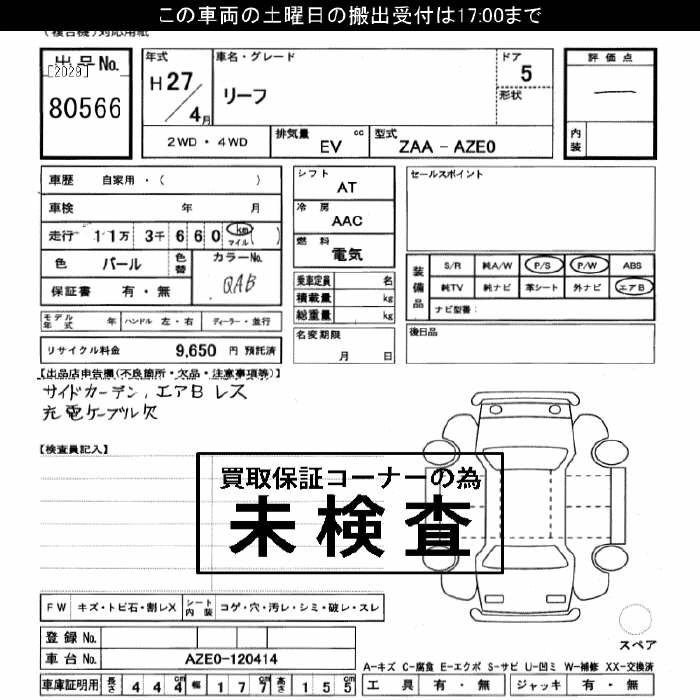 この車両の土曜日の搬出受付は17:00まで
(複合機)対応用紙
出品No.
[2029]
80566
年式
H27/4月
車名・グレード
リーフ
ドア
5
形状
評価点
―
内装
2WD・4WD
排気量 cc
EV
型式
ZAA - AZE0
車歴 自家用・( )
車検 年 月
走行 11万 3千 660 km マイル ( )
色 パール 色替 カラーNo. QAB
保証書 有・無
モデル年式 年 ハンドル 左・右 ディーラー・並行
リサイクル料金 9,650 円 預託済
シフト
AT
冷房
AAC
燃料
電気
乗車定員 名
積載量 kg
総重量 kg
名変期限
月 日
セールスポイント
装備品
S/R 純A/W P/S P/W ABS
純TV 純ナビ 革シート 外ナビ エアB
ナビ型番:
後日品
【出品店申告欄(不良箇所・欠品・注意事項等)】
サイドカーテン,エアB レス
充電ケーブル欠
【検査員記入】
買取保証コーナーの為
未検査
FW キズ・トビ石・割レX シート内装 コゲ・穴・汚レ・シミ・破レ・スレ
登録No.
車台No. AZE0-120414
車庫証明用 長さ 444cm 幅 177cm 高さ 155cm
スペア
A-キズ C-腐食 E-エクボ S-サビ U-凹ミ W-補修 XX-交換済
工具 有・無 ジャッキ 有・無